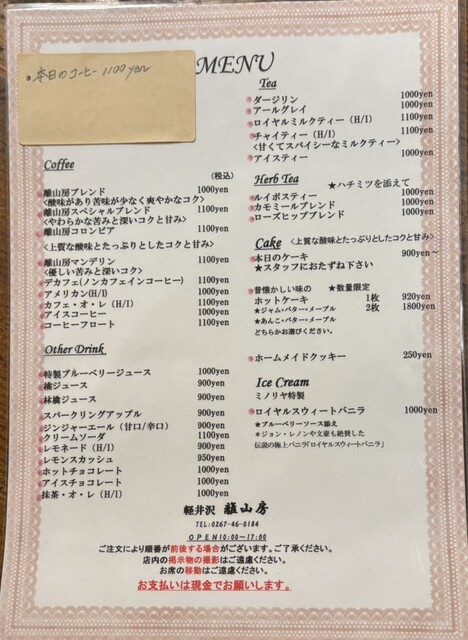 本日のコーヒー 1100yen
MENU
Coffee
(税込)
離山房ブレンド 1000yen
<酸味があり苦味が少なく爽やかなコク>
離山房スペシャルブレンド 1100yen
<やわらかな苦みと深いコクと甘み>
離山房コロンビア 1100yen
<上質な酸味とたっぷりとしたコクと甘み>
離山房マンデリン 1100yen
<優しい苦みと深いコク>
デカフェ(ノンカフェインコーヒー) 1100yen
アメリカン(H/I) 1000yen
カフェ・オ・レ (H/I) 1100yen
アイスコーヒー 1000yen
コーヒーフロート 1100yen
Other Drink
特製ブルーベリージュース 1000yen
橘ジュース 900yen
林檎ジュース 900yen
スパークリングアップル 900yen
ジンジャーエール (甘口/辛口) 900yen
クリームソーダ 1100yen
レモネード (H/I) 900yen
レモンスカッシュ 950yen
ホットチョコレート 1000yen
アイスチョコレート 1000yen
抹茶・オ・レ (H/I) 1000yen
Tea
ダージリン 1000yen
アールグレイ 1000yen
ロイヤルミルクティー (H/I) 1100yen
チャイティー (H/I) 1100yen
<甘くてスパイシーなミルクティー>
アイスティー 1000yen
Herb Tea ★ハチミツを添えて
ルイボスティー 1000yen
カモミールブレンド 1000yen
ローズヒップブレンド 1000yen
Cake <上質な酸味とたっぷりとしたコクと甘み>
本日のケーキ 900yen~
★スタッフにおたずね下さい
昔懐かしい味の ★数量限定
ホットケーキ 1枚 920yen
★ジャム・バター・メープル 2枚 1800yen
★あんこ・バター・メープル
どちらかお選びください。
ホームメイドクッキー 250yen
Ice Cream
ミノリヤ特製
ロイヤルスウィートバニラ 1000yen
★ブルーベリーソース添え
*ジョン・レノンや文豪も絶賛した
伝説の極上バニラ「ロイヤルスウィートバニラ」
軽井沢 離山房
TEL:0267-46-0184
OPEN10:00~17:00
ご注文により順番が前後する場合がございます。ご了承ください。
店内の掲示物の撮影はご遠慮ください。
お席の移動はご遠慮ください。
お支払いは現金でお願いします。